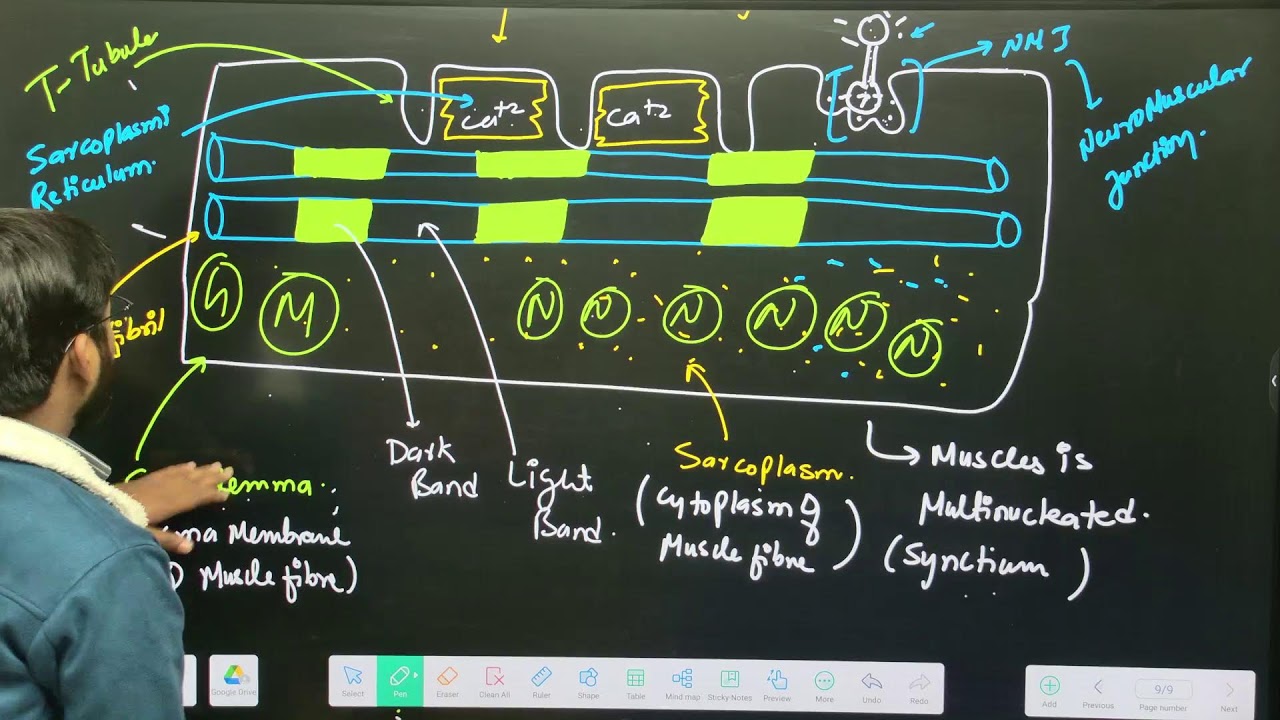 T-Tubule
NMJ
Sarcoplasmi
Reticulum.
Ca+2
Ca+2
NeuroMuscular
Junction.
M
N
N
N
N
N
N
Dark
Band
Light
Band.
Sarcoplasm.
(Cytoplasm of
Muscle fibre)
Muscles is
Multinucleated.
(Synctium)
Membrane
Muscle fibre)
Google Drive
Select
Pen
Eraser
Clean All
Ruler
Shape
Table
Mind map
Sticky Notes
Preview
More
Undo
Redo
Add
Previous
9/9
Page number
Next